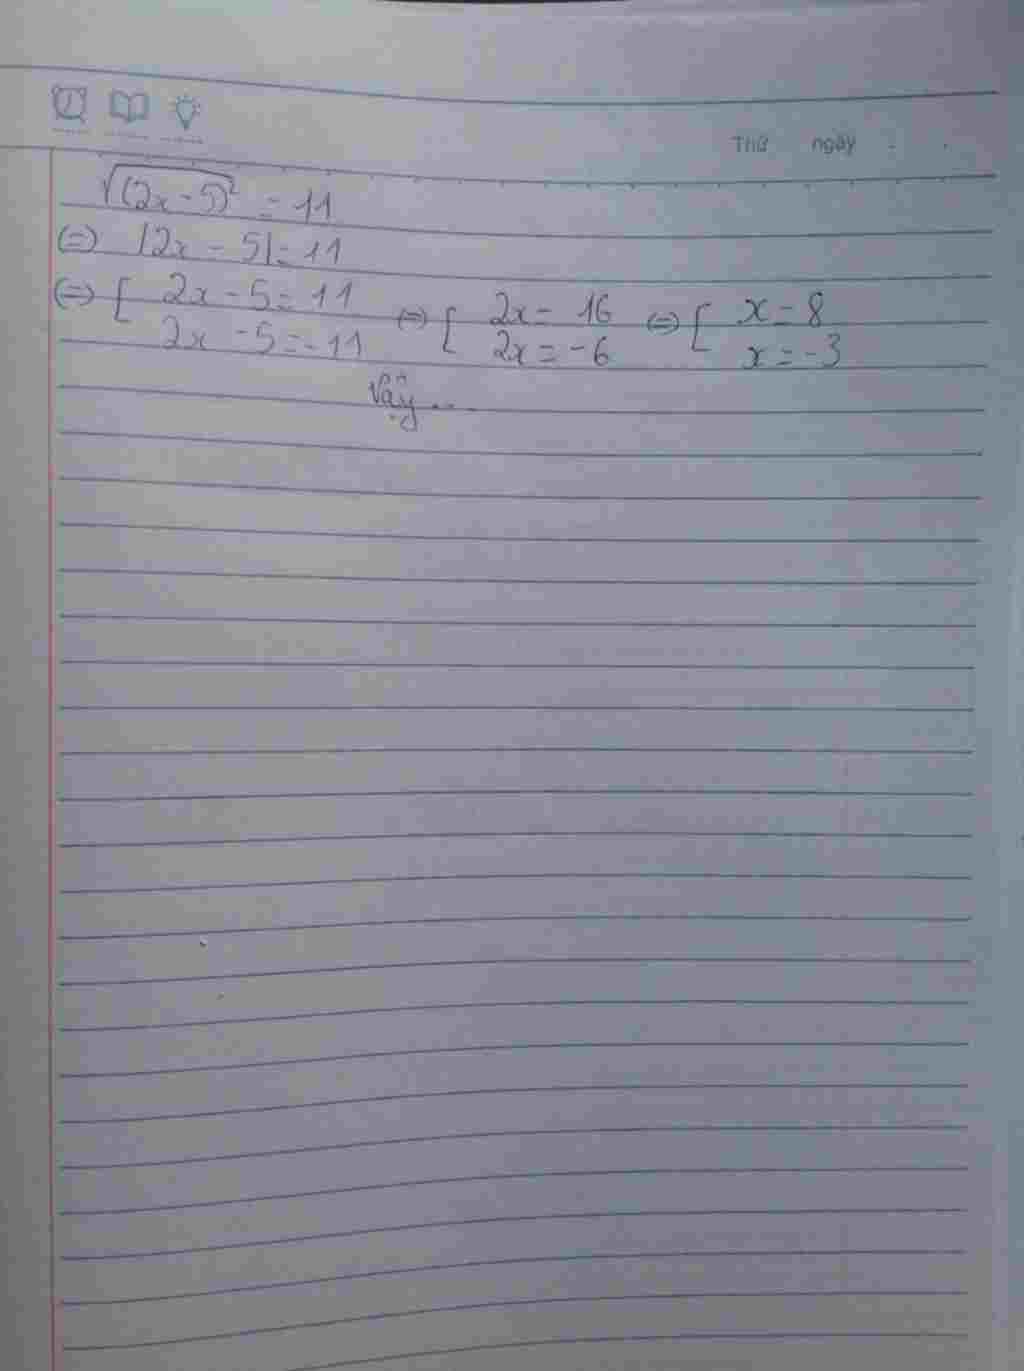 Thứ ngày
√(2x-5)² = 11
(=) |2x - 5| = 11
(=) [ 2x - 5 = 11 (=) [ 2x = 16 (=) [ x = 8
2x - 5 = -11 2x = -6 x = -3
Vậy ...